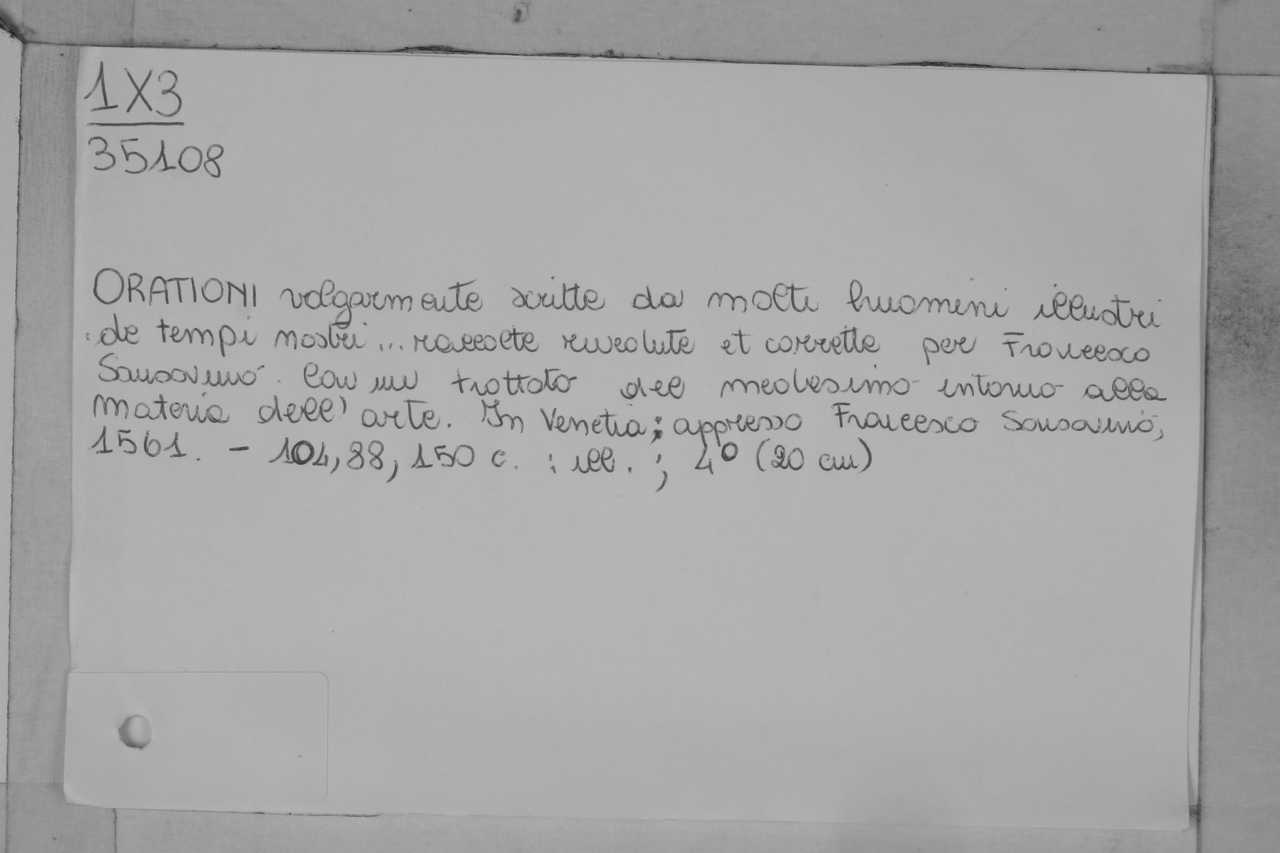 1X3
35108
ORATIONI volgarmente scritte da molti huomini illustri
de tempi nostri... raccolte rivedute et corrette per Francesco
Sansovino. Con un trattato del medesimo intorno alla
materia dell'arte. In Venetia; appresso Francesco Sansovino,
1561. - 104, 88, 150 c. : ill. ; 4º (20 cm)